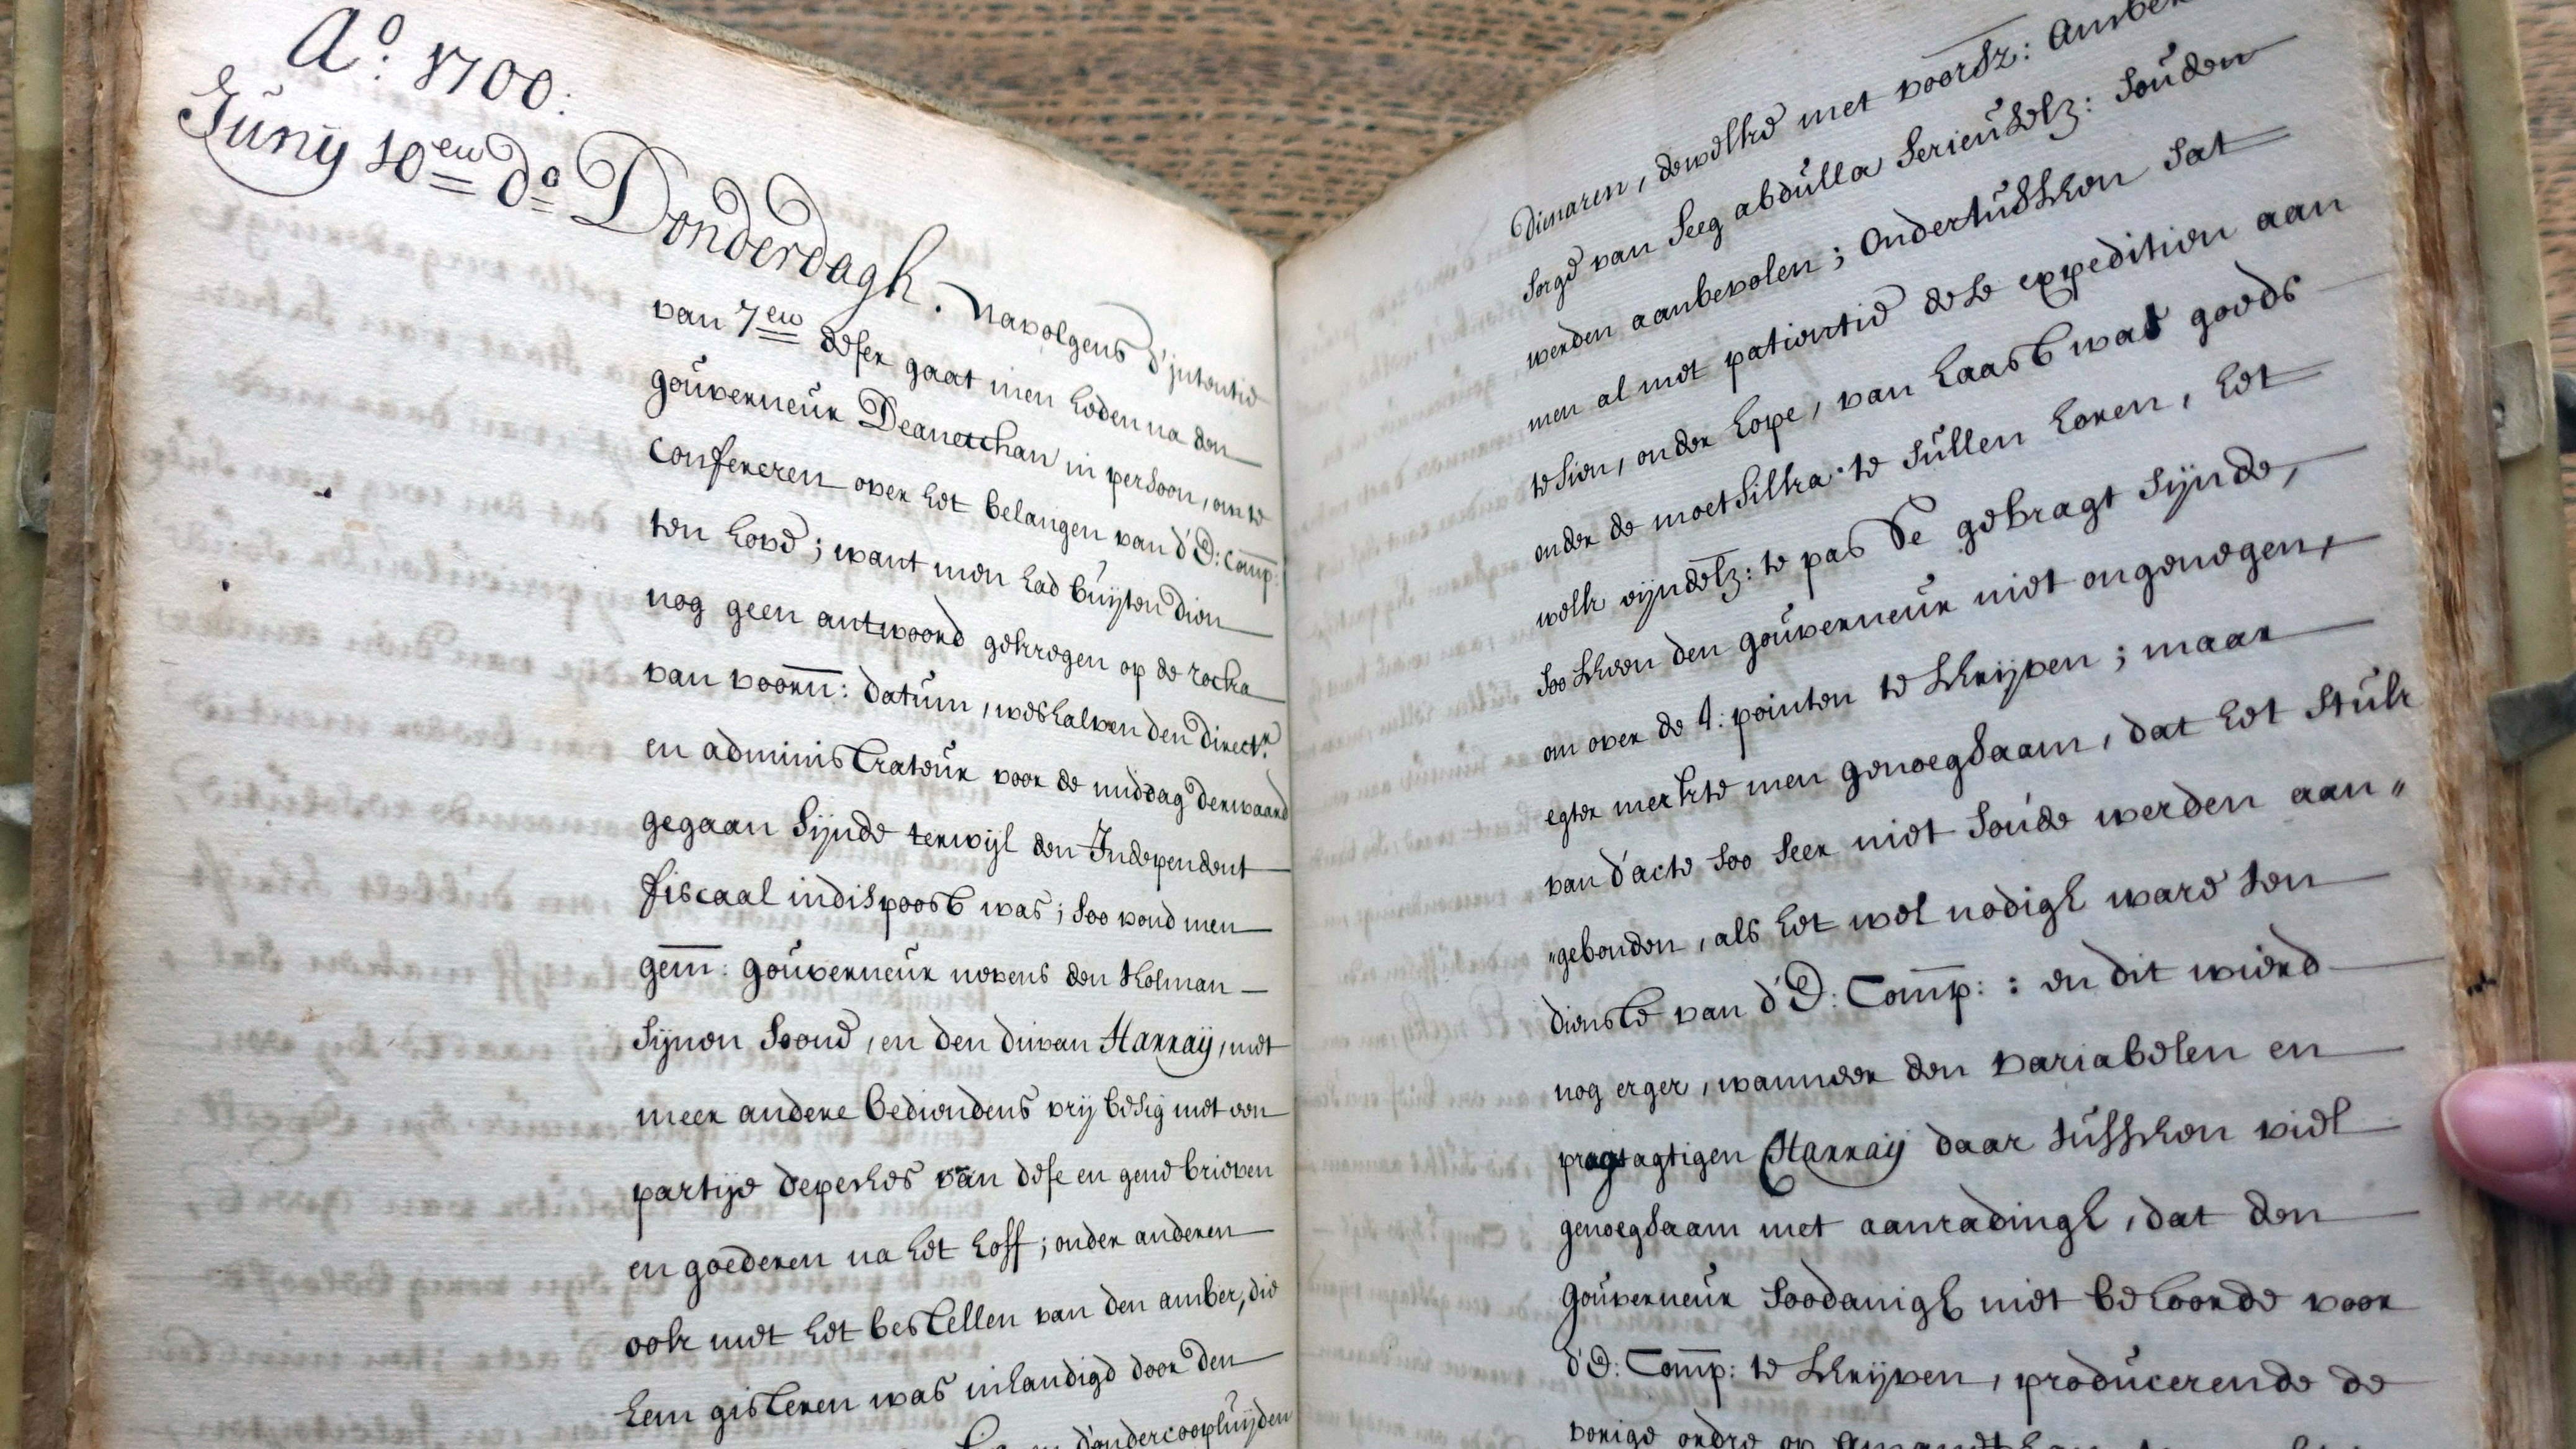 A:o 1700:
Junij 10en do Donderdagh. navolgens d'intentie
van 7en deser gaat men heden na den
gouverneur Deanetchan in persoon, om te
Confereren over het belangen van d'E: Comp:
ten hove; want men had buijten dien
nog geen antwoord gekregen op de rocka
van voorn: datum, weshalven den directr.
en administrateur voor de middag derwaard
gegaan sijnde terwijl den Independent
fiscaal indispoost was; soo vond men
gem: gouverneur nevens den kotman
sijnen soone, en den divan Harraij, met
meer andere bediendens vrij besig met een
partije depeches van dese en gene brieven
en goederen na het hoff; onder anderen
ook met het bestellen van den amber, die
hem gisteren was inhandigd door den
d'ondercoopluijden
Dimaren, dewelke met voorsz: Amber
sorge van Seeg abdulla serieuselz: souden
werden aanbevolen; Ondertusschen sat
men al met patientie dese expeditien aan
te sien, onder hope, van haast wat goeds
onder de moetsilka te sullen horen, het
welk eijndelz: te pas Se gebragt sijnde,
soo scheen den gouverneur niet ongenegen,
om over de 4: pointen te schrijven; maar
egter merkte men genoegsaam, dat het stuk
van d'acte soo seer niet soude werden aan„
„gebonden, als het wel nodigh ware ten
dienste van d'E: Comp: : en dit wierd
nog erger, wanneer den variabelen en
pragtagtigen Harraij daar tusschen viel
genoegsaam met aanradingh, dat den
Gouverneur soodanigh niet behoorde voor
d'E: Comp: te schrijven, producerende de
vorige ordre op